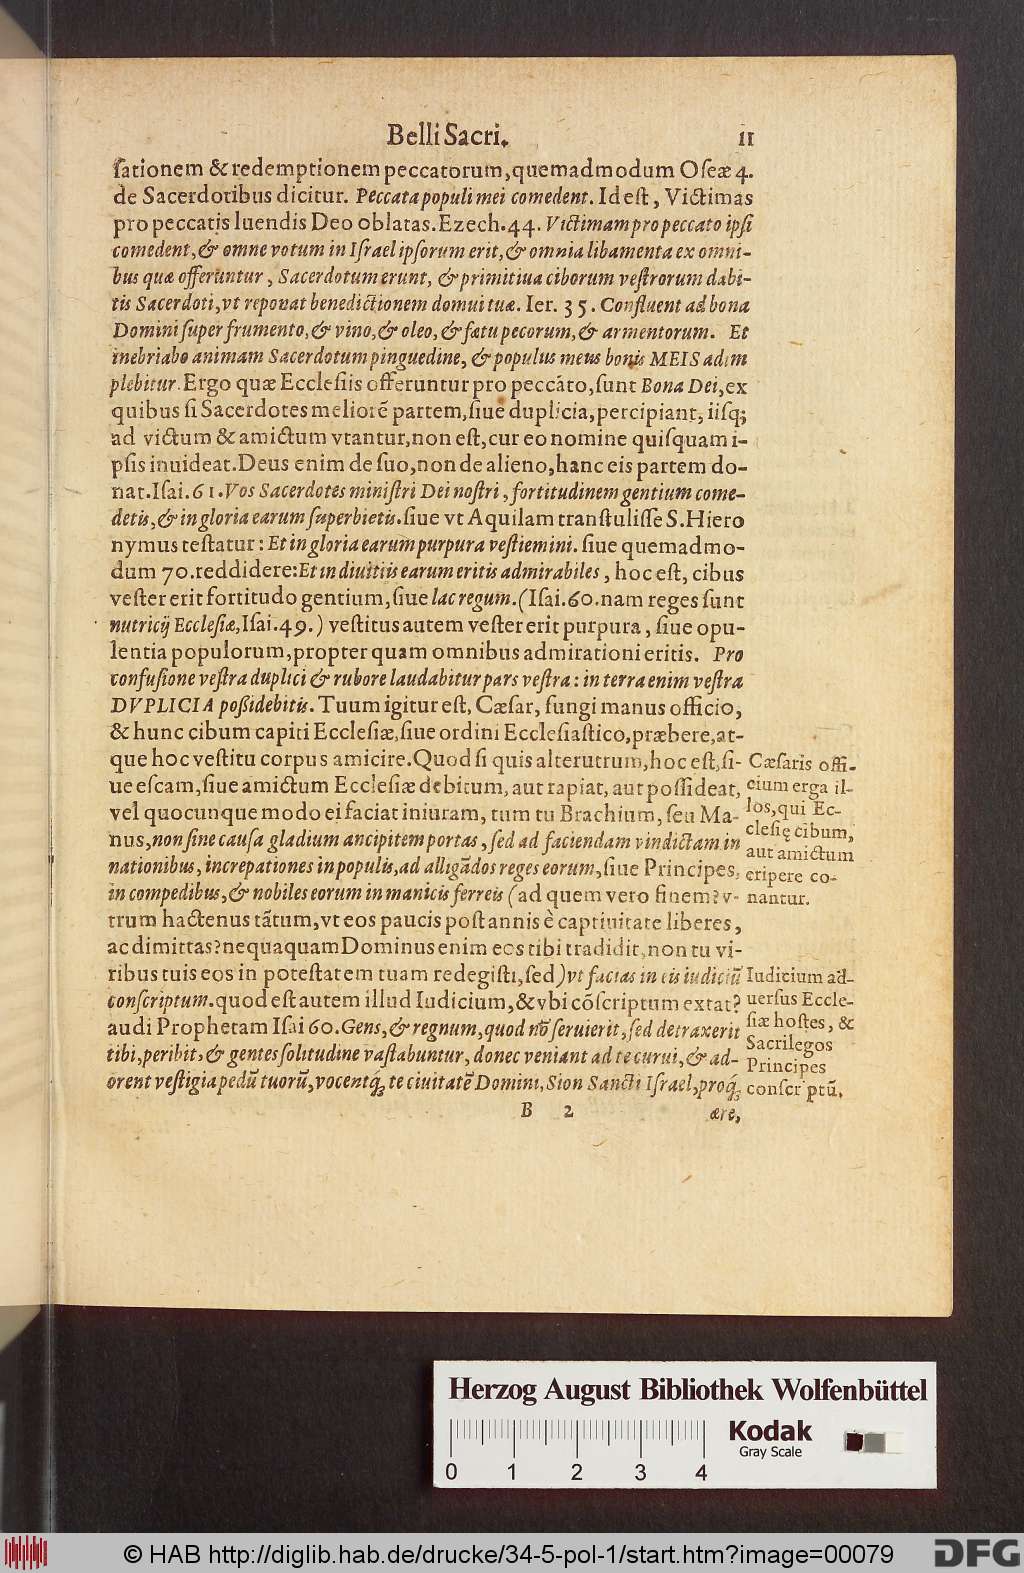 Belli Sacri. 11
ſationem & redemptionem peccatorum, quemadmodum Oſeæ 4.
de Sacerdotibus dicitur. Peccata populi mei comedent. Id eſt, Victimas
pro peccatis luendis Deo oblatas. Ezech. 44. Victimam pro peccato ipſi
comedent, & omne votum in Iſrael ipſorum erit, & omnia libamenta ex omni-
bus quæ offeruntur, Sacerdotum erunt, & primitiua ciborum veſtrorum dabi-
tis Sacerdoti, vt reponat benedictionem domui tuæ. Ier. 35. Confluent ad bona
Domini ſuper frumento, & vino, & oleo, & fœtu pecorum, & armentorum. Et
inebriabo animam Sacerdotum pinguedine, & populus meus bonis MEIS adim
plebitur. Ergo quæ Eccleſiis offeruntur pro peccato, ſunt Bona Dei, ex
quibus ſi Sacerdotes meliorē partem, ſiue duplicia, percipiant, iiſq;
ad victum & amictum vtantur, non eſt, cur eo nomine quiſquam i-
pſis inuideat. Deus enim de ſuo, non de alieno, hanc eis partem do-
nat. Iſai. 61. Vos Sacerdotes miniſtri Dei noſtri, fortitudinem gentium come-
detis, & in gloria earum ſuperbietis. ſiue vt Aquilam tranſtuliſſe S. Hiero
nymus teſtatur: Et in gloria earum purpura veſtiemini. ſiue quemadmo-
dum 70. reddidere: Et in diuitiis earum eritis admirabiles, hoc eſt, cibus
veſter erit fortitudo gentium, ſiue lac regum. (Iſai. 60. nam reges ſunt
nutricij Eccleſiæ, Iſai. 49.) veſtitus autem veſter erit purpura, ſiue opu-
lentia populorum, propter quam omnibus admirationi eritis. Pro
confuſione veſtra duplici & rubore laudabitur pars veſtra: in terra enim veſtra
DVPLICIA poßidebitis. Tuum igitur eſt, Cæſar, fungi manus officio,
& hunc cibum capiti Eccleſiæ, ſiue ordini Eccleſiaſtico, præbere, at-
que hoc veſtitu corpus amicire. Quod ſi quis alterutrum, hoc eſt, ſi-
ue eſcam, ſiue amictum Eccleſiæ debitum, aut rapiat, aut poſſideat,
vel quocunque modo ei faciat iniuram, tum tu Brachium, ſeu Ma-
nus, non ſine cauſa gladium ancipitem portas, ſed ad faciendam vindictam in
nationibus, increpationes in populis, ad alligādos reges eorum, ſiue Principes,
in compedibus, & nobiles eorum in manicis ferreis (ad quem vero finem? v-
trum hactenus tātum, vt eos paucis poſt annis è captiuitate liberes,
ac dimittas? nequaquam Dominus enim eos tibi tradidit, non tu vi-
ribus tuis eos in poteſtatem tuam redegiſti, ſed) vt facias in eis iudiciū
conſcriptum. quod eſt autem illud Iudicium, & vbi cōſcriptum extat?
audi Prophetam Iſai 60. Gens, & regnum, quod nō ſeruierit, ſed detraxerit
tibi, peribit, & gentes ſolitudine vaſtabuntur, donec veniant ad te curui, & ad-
orent veſtigia pedū tuorū, vocentq́; te ciuitatē Domini, Sion Sancti Iſrael, proq́;
B 2 ære,
Cæſaris offi-
cium erga il-
los, qui Ec-
cleſię cibum,
aut amictum
eripere co-
nantur.
Iudicium ad-
uerſus Eccle-
ſiæ hoſtes, &
Sacrilegos
Principes
conſcriptū.
Herzog August Bibliothek Wolfenbüttel
Kodak
Gray Scale
0 1 2 3 4
© HAB http://diglib.hab.de/drucke/34-5-pol-1/start.htm?image=00079
DFG